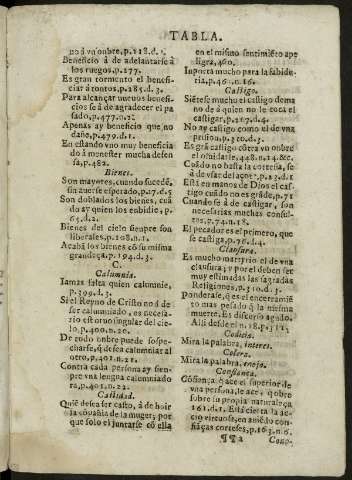 TABLA.
no à vn onbre, p. 118. d. 2.
Beneficio â de adelantarse â
los ruegos, p. 177.
Es gran tormento el benefi-
ciar a tontos, p. 285. d. 3.
Para alcançar nueuos benefi-
cios se â de agradecer el pa
sado, p. 477. n. 2.
Apenas ay beneficio que no
daño, p. 479. d. 1.
En estando vno muy beneficia
do â menester mucha defen
sa, p. 482.
Bienes.
Son mayores, cuando sucedē,
sin auerse esperado, p. 17. d. 5
Son doblados los bienes, cuā
do ay quien los enbidie, p.
63. d. 2.
Bienes del cielo sienpre son
liberales, p. 108. n. 1.
Acabā los bienes cō su misma
grandeça, p. 194. d. 3.
C.
Calumnia.
Iamas falta quien calumnie,
p. 399. d. 3.
Si el Reyno de Cristo no â de
ser calumniado, es necesa-
rio estorno singular del cie-
lo, p. 400. n. 20.
De todo onbre puede sospe-
charse, q̄ desea calumniar al
otro, p. 401. n. 21.
Contra cada persona ay sien-
pre vna lengua calumniado
ra, p. 401. n. 22.
Castidad.
Quiē desea ser casto, â de huir
la cōpañia de la muger; por
que solo el juntarse cō ella
en el mismo sentimiēto ape
ligra, 460.
Inporta mucho para la sabidu-
ria, p. 460. n. 16.
Castigo.
Siētese mucho el castigo de ma
no de â quien no le toca el
castigar, p. 217. d. 4.
No ay castigo como el de vna
parison, p. 230. d. 4.
Es grā castigo cōtra vn onbre
el oluidarle, 448. n. 14. &c.
Coxao no basta la cortesia, se
â de vsar del açote, p. 13. d. 1
Está en manos de Dios el cas-
tigo cuādo no es grāde, p. 71
Cuando se â de castigar, son
necesarias muchas consul-
tas, p. 74. n. 18.
El pecador es el primero, que
se castiga, p. 76. d. 4.
Clausura.
Es mucho martyrio el de vna
clausura; y por el deben ser
muy estimadas las sagradas
Religiones, p. 310. d. 3.
Ponderase, q̄ es el encerramiē
to mas pesado q̄ la misma
muerte. Es discurso agudo.
Alli desde el n. 18. p. 311.
Codicia.
Mira la palabra, interes.
Colera.
Mira la palabra, enojo.
Confiança.
Cōfiança, q̄ ace el superior de
vna persona, le ace, q̄ obre
sobre su propia naturaleça
161. d. 1. Està cierta la ac-
cio virtuosa, en auiēdo con-
fiāças corteses, p. 163. n. 6.
¶¶2 Cono-